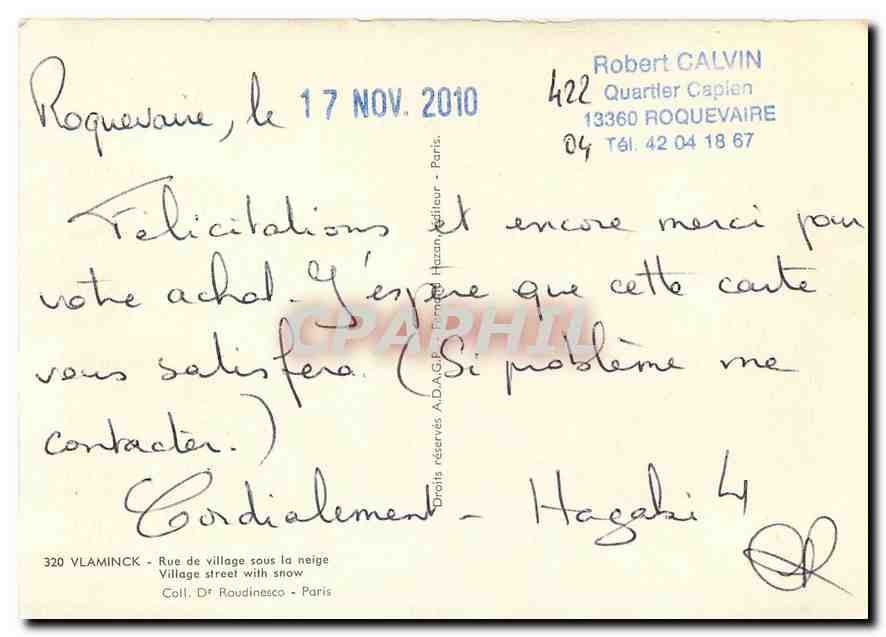 Robert CALVIN
422 Quartier Capien
13360 ROQUEVAIRE
04 Tél. 42 04 18 67
Roquevaire, le 17 NOV. 2010
Félicitations et encore merci pour
votre achat. J'espère que cette carte
vous satisfera. (Si problème me
contacter.)
Cordialement - Hagaki 4
CPAPHIL
Droits réservés A.D.A.G.P. - Fernand Hazan, éditeur - Paris.
320 VLAMINCK - Rue de village sous la neige
Village street with snow
Coll. Dr Roudinesco - Paris